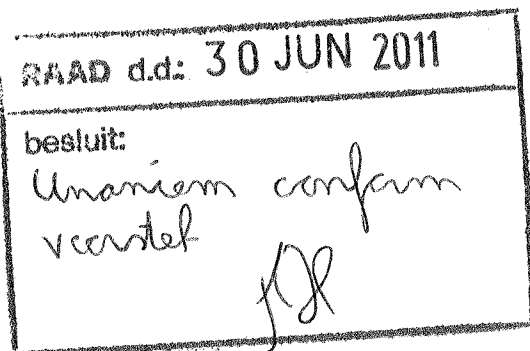 RAAD d.d.: 30 JUN 2011
besluit:
Unaniem conform
voorstel